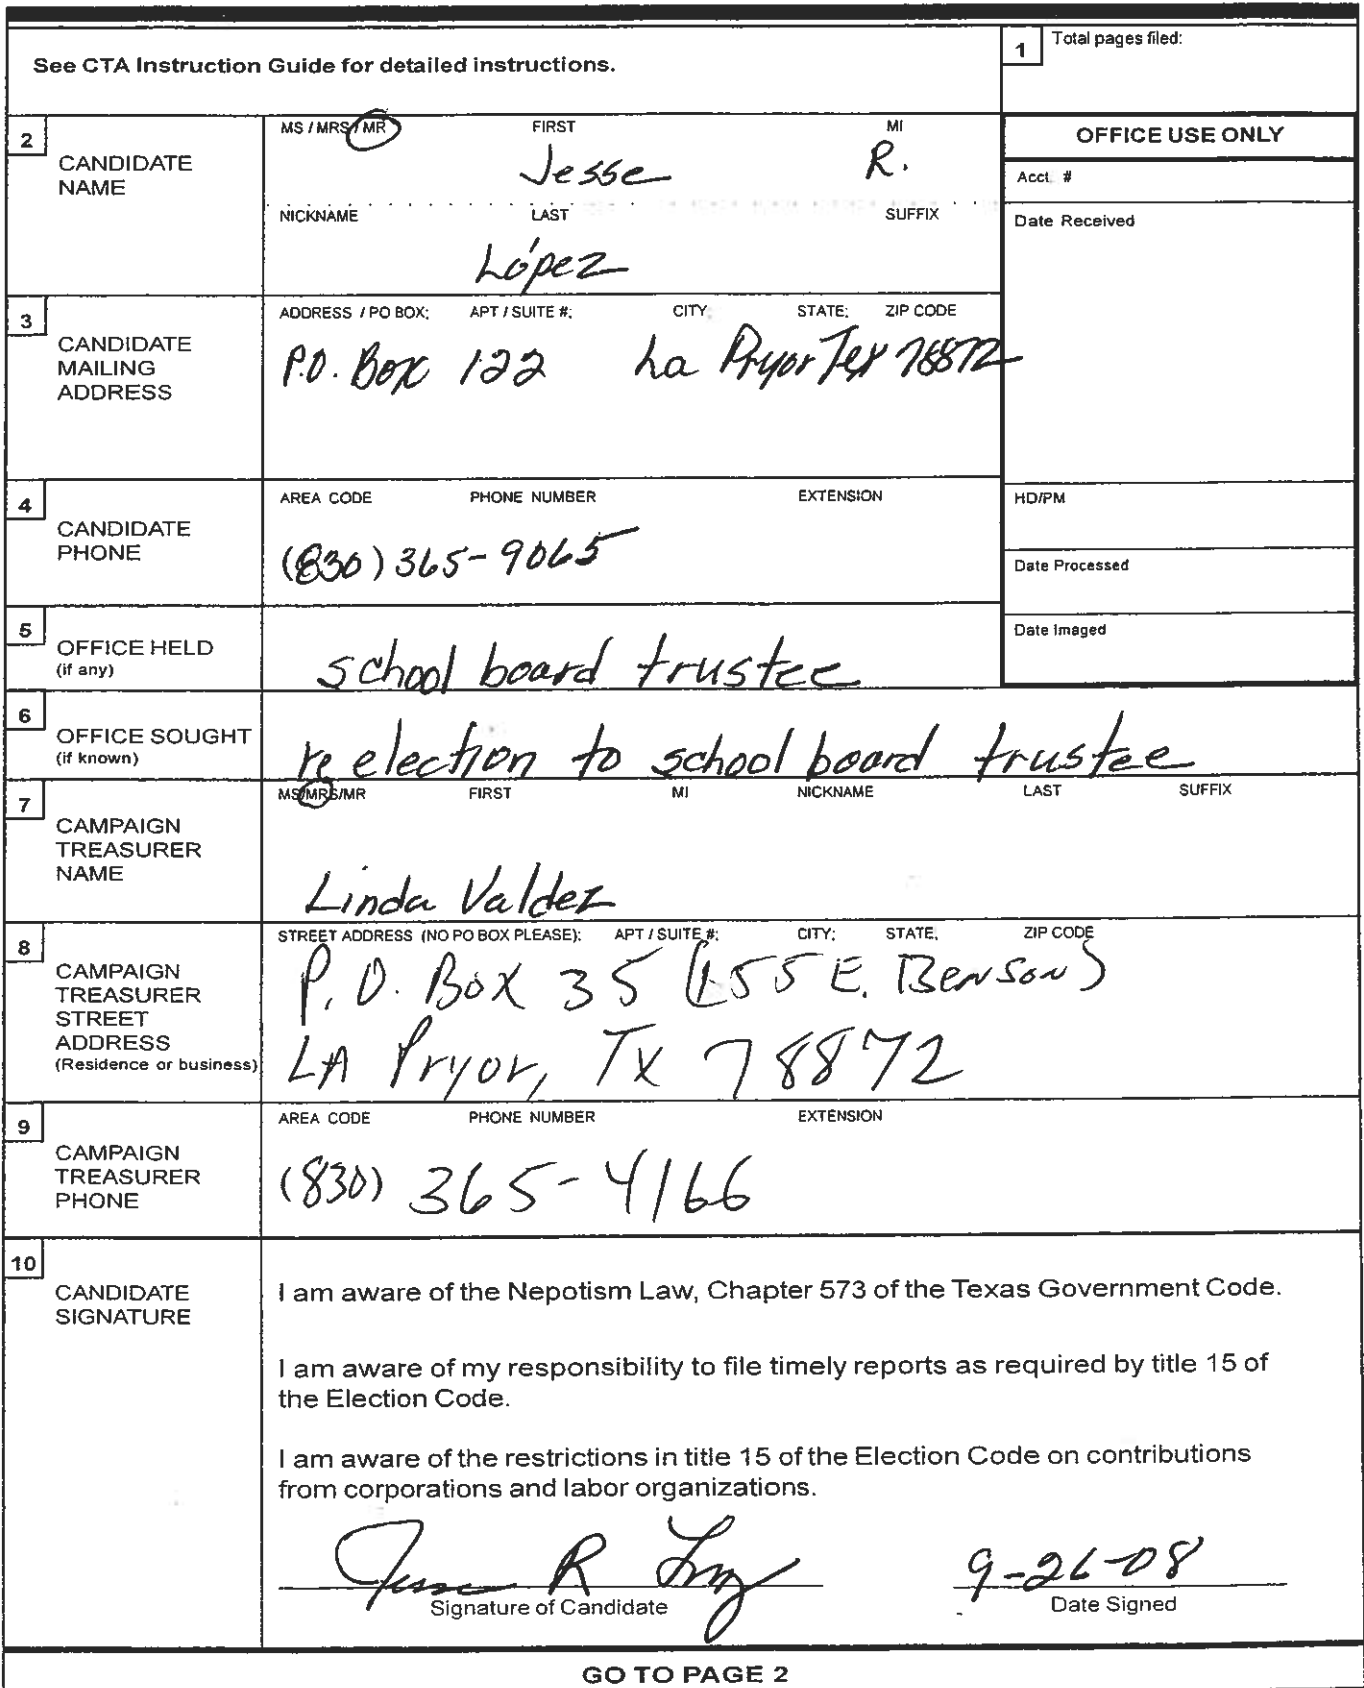 See CTA Instruction Guide for detailed instructions.
1 Total pages filed:
2 CANDIDATE NAME
MS / MRS / MR FIRST MI
Jesse R.
NICKNAME LAST SUFFIX
López
OFFICE USE ONLY
Acct. #
Date Received
3 CANDIDATE MAILING ADDRESS
ADDRESS / PO BOX; APT / SUITE #; CITY; STATE; ZIP CODE
P.O. Box 122 La Pryor Tex 78872
4 CANDIDATE PHONE
AREA CODE PHONE NUMBER EXTENSION
(830) 365-9065
HD/PM
Date Processed
Date Imaged
5 OFFICE HELD (if any)
school board trustee
6 OFFICE SOUGHT (if known)
re election to school board trustee
7 CAMPAIGN TREASURER NAME
MS/MRS/MR FIRST MI NICKNAME LAST SUFFIX
Linda Valdez
8 CAMPAIGN TREASURER STREET ADDRESS (Residence or business)
STREET ADDRESS (NO PO BOX PLEASE); APT / SUITE #; CITY; STATE; ZIP CODE
P.O. Box 35 (155 E. Benson)
LA Pryor, Tx 78872
9 CAMPAIGN TREASURER PHONE
AREA CODE PHONE NUMBER EXTENSION
(830) 365-4166
10 CANDIDATE SIGNATURE
I am aware of the Nepotism Law, Chapter 573 of the Texas Government Code.
I am aware of my responsibility to file timely reports as required by title 15 of
the Election Code.
I am aware of the restrictions in title 15 of the Election Code on contributions
from corporations and labor organizations.
Jesse R Lopez 9-26-08
Signature of Candidate Date Signed
GO TO PAGE 2